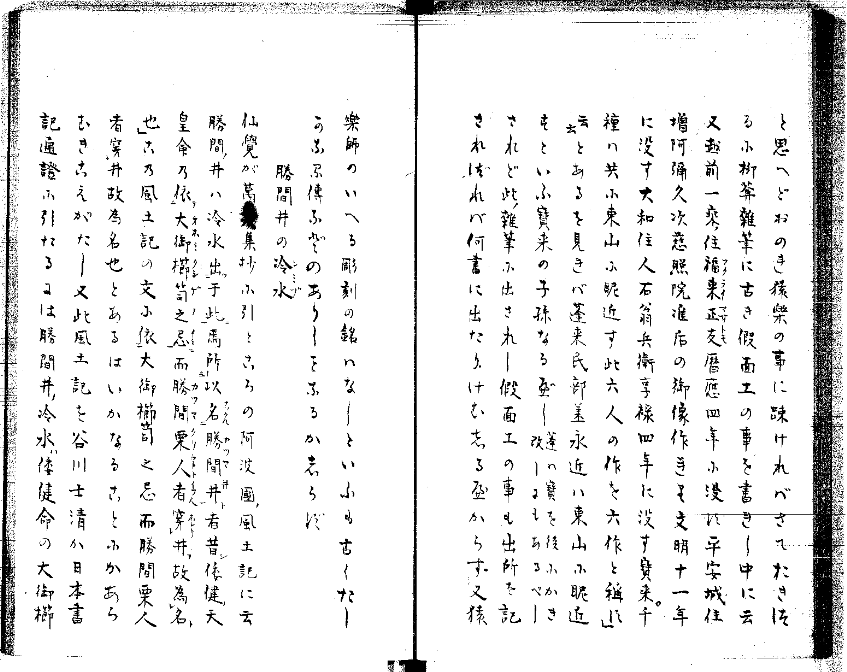 と思へどおのき猿樂の事に疎ければさておきぬ
るに柳菴雜筆に古き假面工の事を書きし中に云
又越前一乘住福來正友暦應四年に沒す平安城住
増阿彌久次慈照院准后の御像作きも文明十一年
に沒す大和住人石翁兵衛享祿四年に沒す寶來千
種の共に東山に昵近す此六人の作を六作と稱す」
云々とあるを見れば蓬来氏部盖永近い東山に昵近
もといふ寶来の子孫なる歪し蓬の寶を後にかき改しにもあるべし
されど此雜筆に出されし假面工の事も出所を記
されざれバ何書に出たりけむ志る歪からず又猿
樂師のいへる彫刻の銘いなしといふも古くたし
かなる傳ふどのありしをふるか志らず
勝間井の冷水
仙覺が萬集抄に引ところの阿波國風土記に云
勝間井ハ冷水出于此焉所以名勝間井者昔倭健天
皇命乃依大御櫛笥之忌而勝間粟人者穿井故為名
也」この風土記の文に依大御櫛笥之忌而勝間粟人
者穿井故為名也とあるはいかなることにかあら
むきこえがたし又此風土記を谷川士清か日本書
記通證に引たるには勝間井冷水倭健命の大御櫛